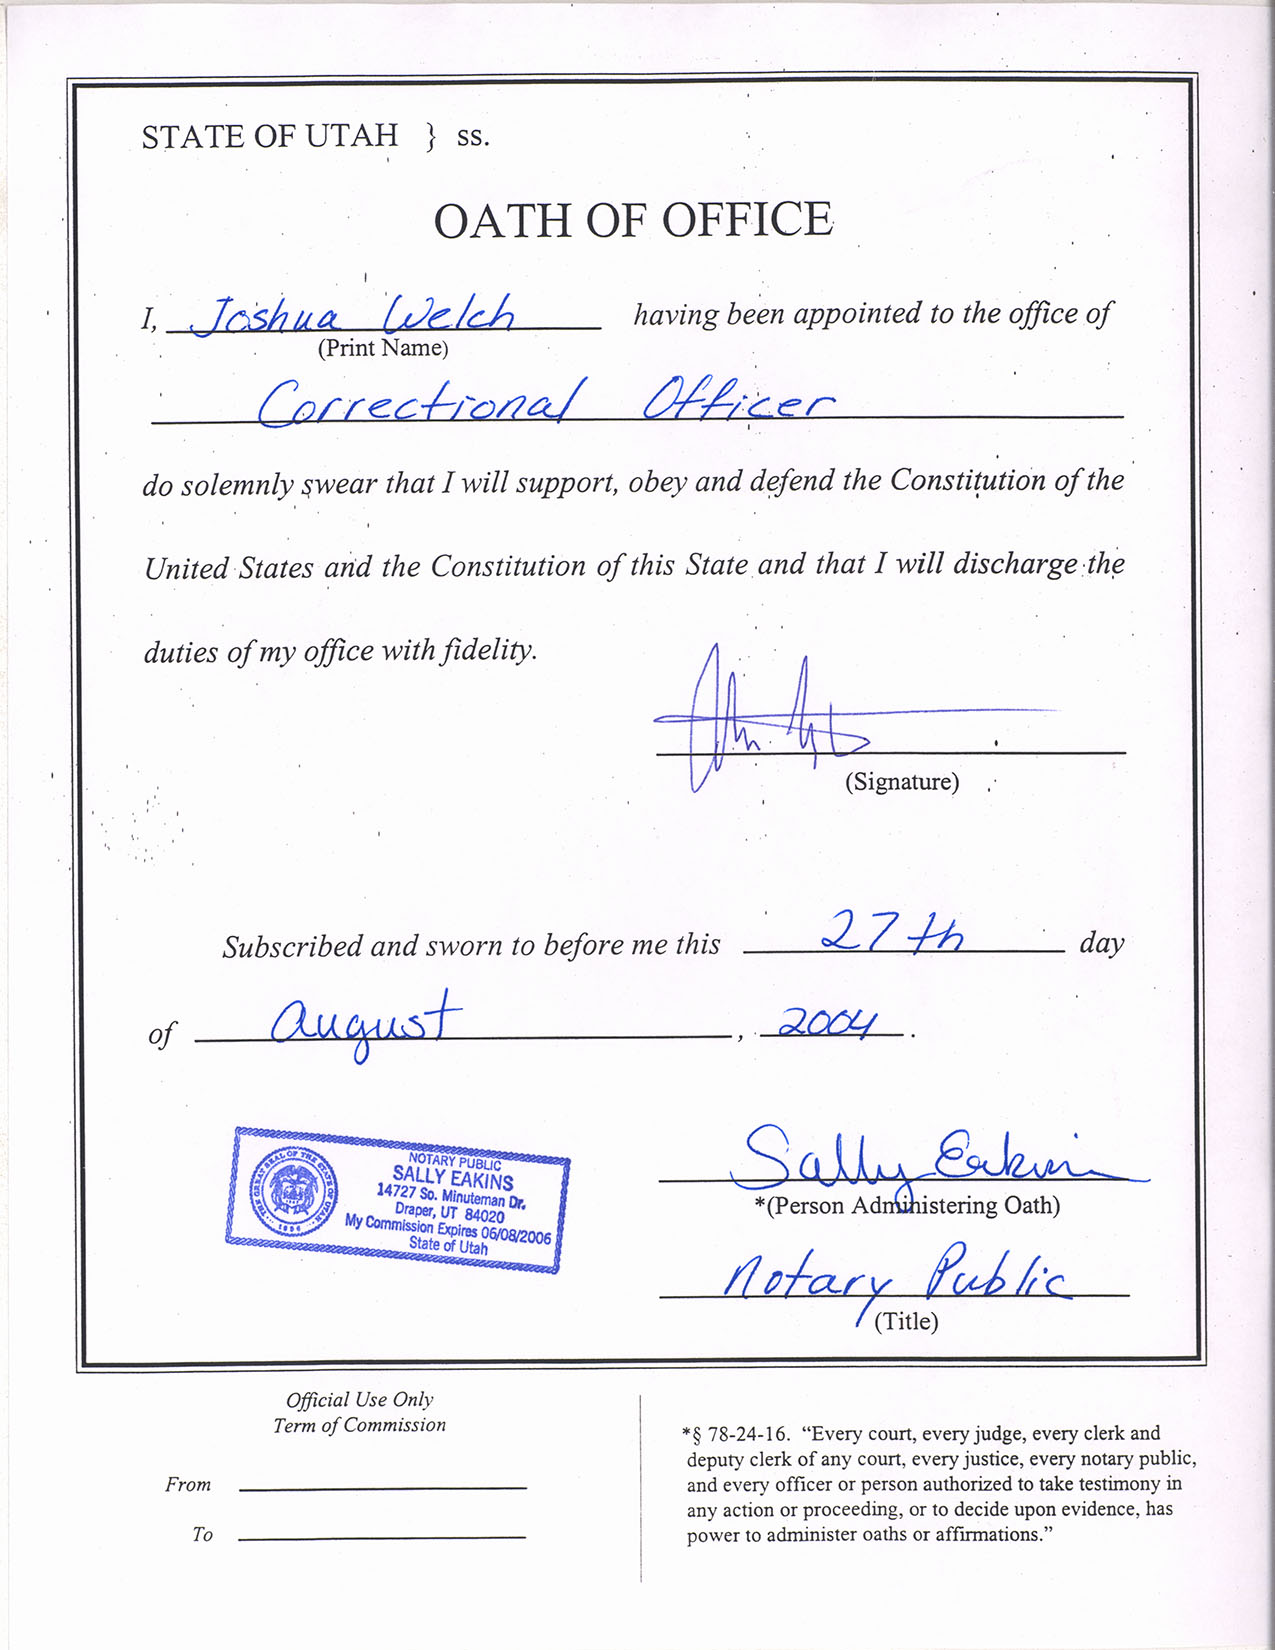 STATE OF UTAH } ss.
OATH OF OFFICE
I, Joshua Welch having been appointed to the office of
(Print Name)
Correctional Officer
do solemnly swear that I will support, obey and defend the Constitution of the
United States and the Constitution of this State and that I will discharge the
duties of my office with fidelity.
(Signature)
Subscribed and sworn to before me this 27th day
of August, 2004.
NOTARY PUBLIC
SALLY EAKINS
14727 So. Minuteman Dr.
Draper, UT 84020
My Commission Expires 06/08/2006
State of Utah
THE GREAT SEAL OF THE STATE OF UTAH
1896
Sally Eakins
*(Person Administering Oath)
Notary Public
(Title)
Official Use Only
Term of Commission
From
To
*§ 78-24-16. “Every court, every judge, every clerk and
deputy clerk of any court, every justice, every notary public,
and every officer or person authorized to take testimony in
any action or proceeding, or to decide upon evidence, has
power to administer oaths or affirmations.”